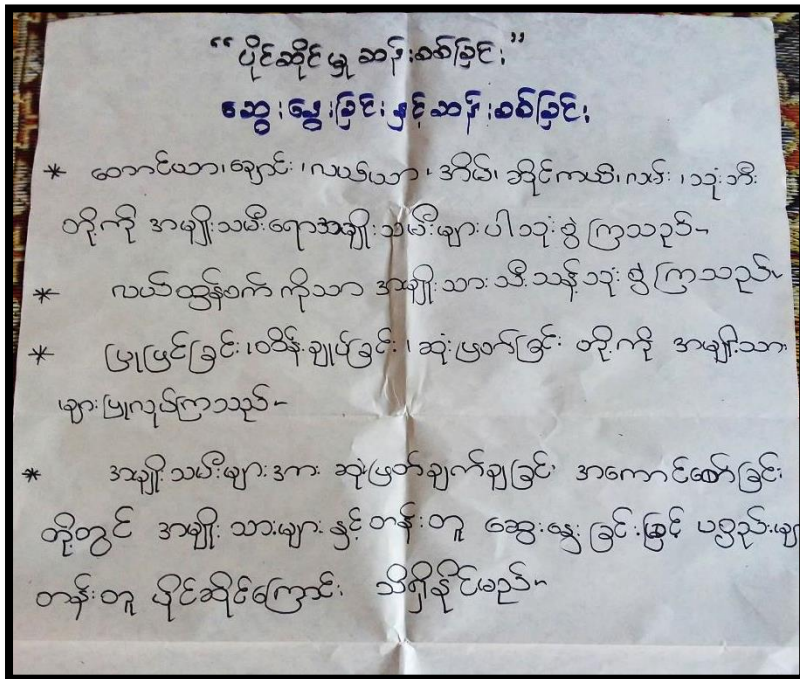 “ပိုင်ဆိုင်မှု ဆန်းစစ်ခြင်း”
ဆွေးနွေးခြင်းနှင့်ဆန်းစစ်ခြင်း
* တောင်ယာ၊ချောင်း၊လယ်ယာ၊အိမ်၊ဆိုင်ကယ်၊လမ်း၊သုံးဘီး
တို့ကို အမျိုးသမီးရောအမျိုးသမီးများပါသုံးစွဲကြသည်။
* လယ်ထွန်စက် ကိုသာ အမျိုးသားသီးသန့်သုံးစွဲကြသည်။
* ပြုပြင်ခြင်း၊ထိန်းချုပ်ခြင်း၊ဆုံးဖြတ်ခြင်း တို့ကို အမျိုးသား
များပြုလုပ်ကြသည်။
* အမျိုးသမီးများအား ဆုံးဖြတ်ချက်ချခြင်း အကောင်ထော်ခြင်း
တို့တွင် အမျိုးသားများနှင့်တန်းတူ ဆွေးနွေးခြင်းဖြင့် ပစ္စည်းမျ
တန်းတူ ပိုင်ဆိုင်ကြောင်း သိရှိနိုင်မည်။